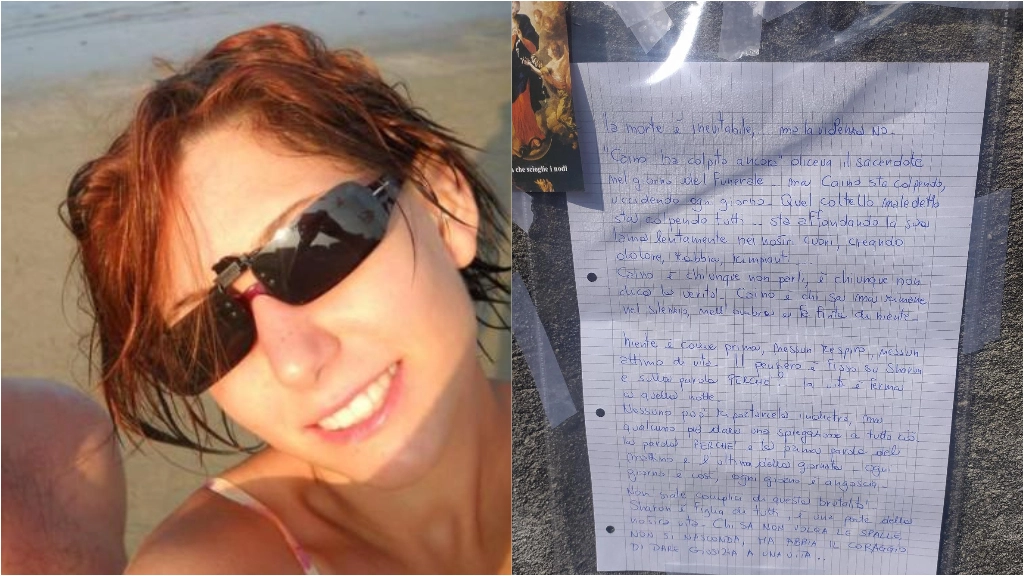 a che scioglie i nodi
la morte è inevitabile, ma la violenza NO.
"Caino ha colpito ancora" diceva il sacerdote
nel giorno del funerale ma Caino sta colpendo,
uccidendo ogni giorno. Quel coltello maledetto
sta colpendo tutti... sta affondando la sua
lama lentamente nei nostri cuori, creando
dolore, rabbia, rimpianti...
Caino è chiunque non parli, è chiunque non
dica la verità. Caino è chi sa ma rimane
nel silenzio, nell'ombra e fa finta di niente.
Niente è come prima, nessun respiro, nessun
attimo di vita. Il pensiero è fisso su Sharon
e sulla parola PERCHÈ. la vita è ferma
a quella notte.
Nessuno può riportarcela indietro, ma
qualcuno può dare una spiegazione a tutto ciò.
la parola PERCHE è la prima parola del
mattino e è l'ultima della giornata. ogni
giorno è così, ogni giorno è angoscia.
Non siate complici di questa brutalità
Sharon è figlia di tutti, è una parte della
nostra vita. CHI SA NON VOLGA LE SPALLE,
NON SI NASCONDA, MA ABBIA IL CORAGGIO
DI DARE GIUSTIZIA A UNA VITA..